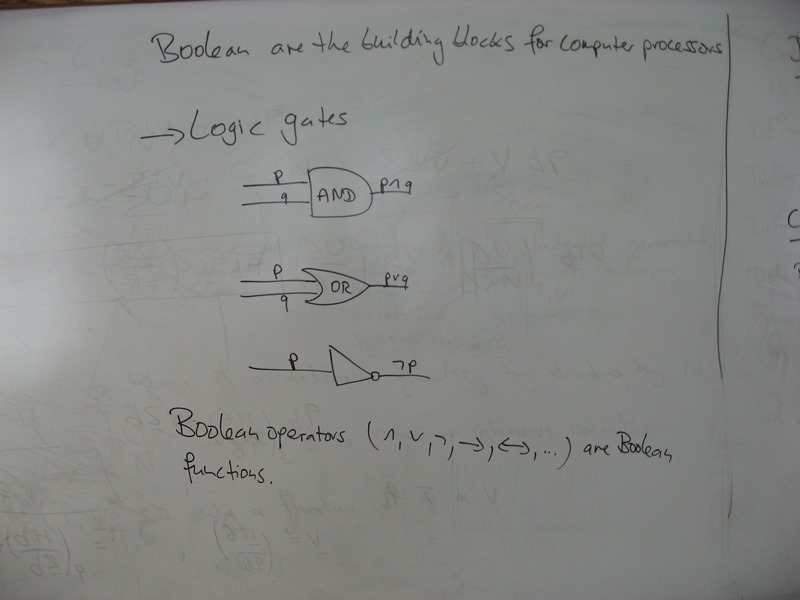 Boolean are the building blocks for computer processors
→ Logic gates
p
q
AND
p∧q
p
q
OR
p∨q
p
¬p
Boolean operators (∧, ∨, ¬, →, ↔, ...) are Boolean
functions.